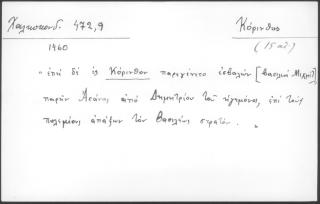 Χαλκοκονδ. 472,9 Κόρινθος
1460 (15 αἰ.)
"ἐπεὶ δὲ ἐς Κόρινθον παρεγένετο ἐσβαλὼν [βασιλεὺς Μεχμέτ]
παρῆν Ἀσάνης ἀπὸ Δημητρίου τοῦ ἡγεμόνος, ἐπὶ τοὺς
πολεμίους ἀπάξων τὸν βασιλέως στρατόν. "